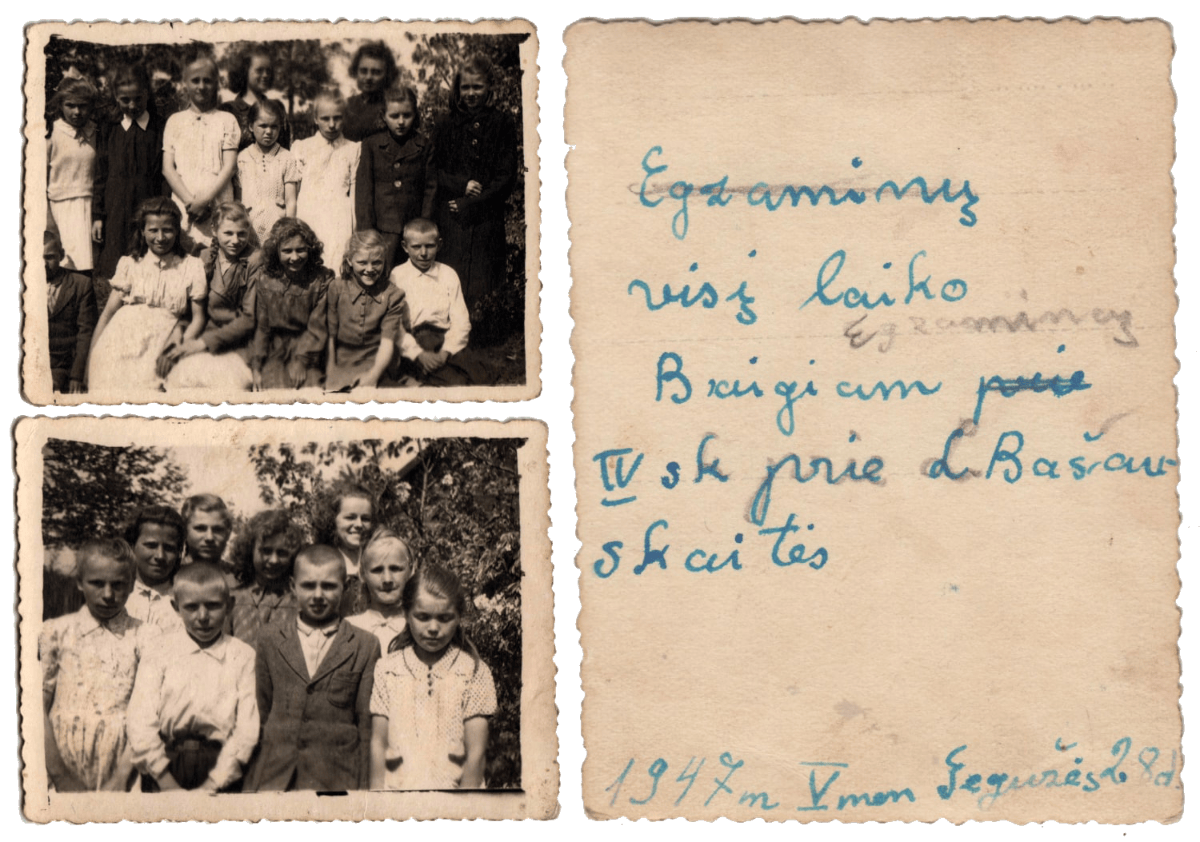 Egzaminų
visį laiko
Egzaminų
Baigiam prie
IV sk prie L Bašau-
skaitės
1947 m V men Gegužės 28 d